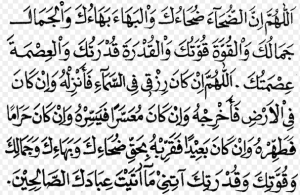 اَللّٰهُمَّ اِنَّ الضُّحَآءَ ضُحَاءُكَ وَالْبَهَاءَ بَهَاءُكَ وَالْجَمَالَ
جَمَالُكَ وَالْقُوَّةَ قُوَّتُكَ وَالْقُدْرَةَ قُدْرَتُكَ وَالْعِصْمَةَ
عِصْمَتُكَ . اَللّٰهُمَّ اِنْ كَانَ رِزْقِى فِى السَّمَآءِ فَأَنْزِلْهُ وَاِنْ كَانَ
فِى اْلاَرْضِ فَأَخْرِجْهُ وَاِنْ كَانَ مُعَسَّرًا فَيَسِّرْهُ وَاِنْ كَانَ حَرَامًا
فَطَهِّرْهُ وَاِنْ كَانَ بَعِيْدًا فَقَرِّبْهُ بِحَقِّ ضُحَاءِكَ وَبَهَاءِكَ وَجَمَالِكَ
وَقُوَّتِكَ وَقُدْرَتِكَ آتِنِىْ مَآاَتَيْتَ عِبَادَكَ الصَّالِحِيْنَ.